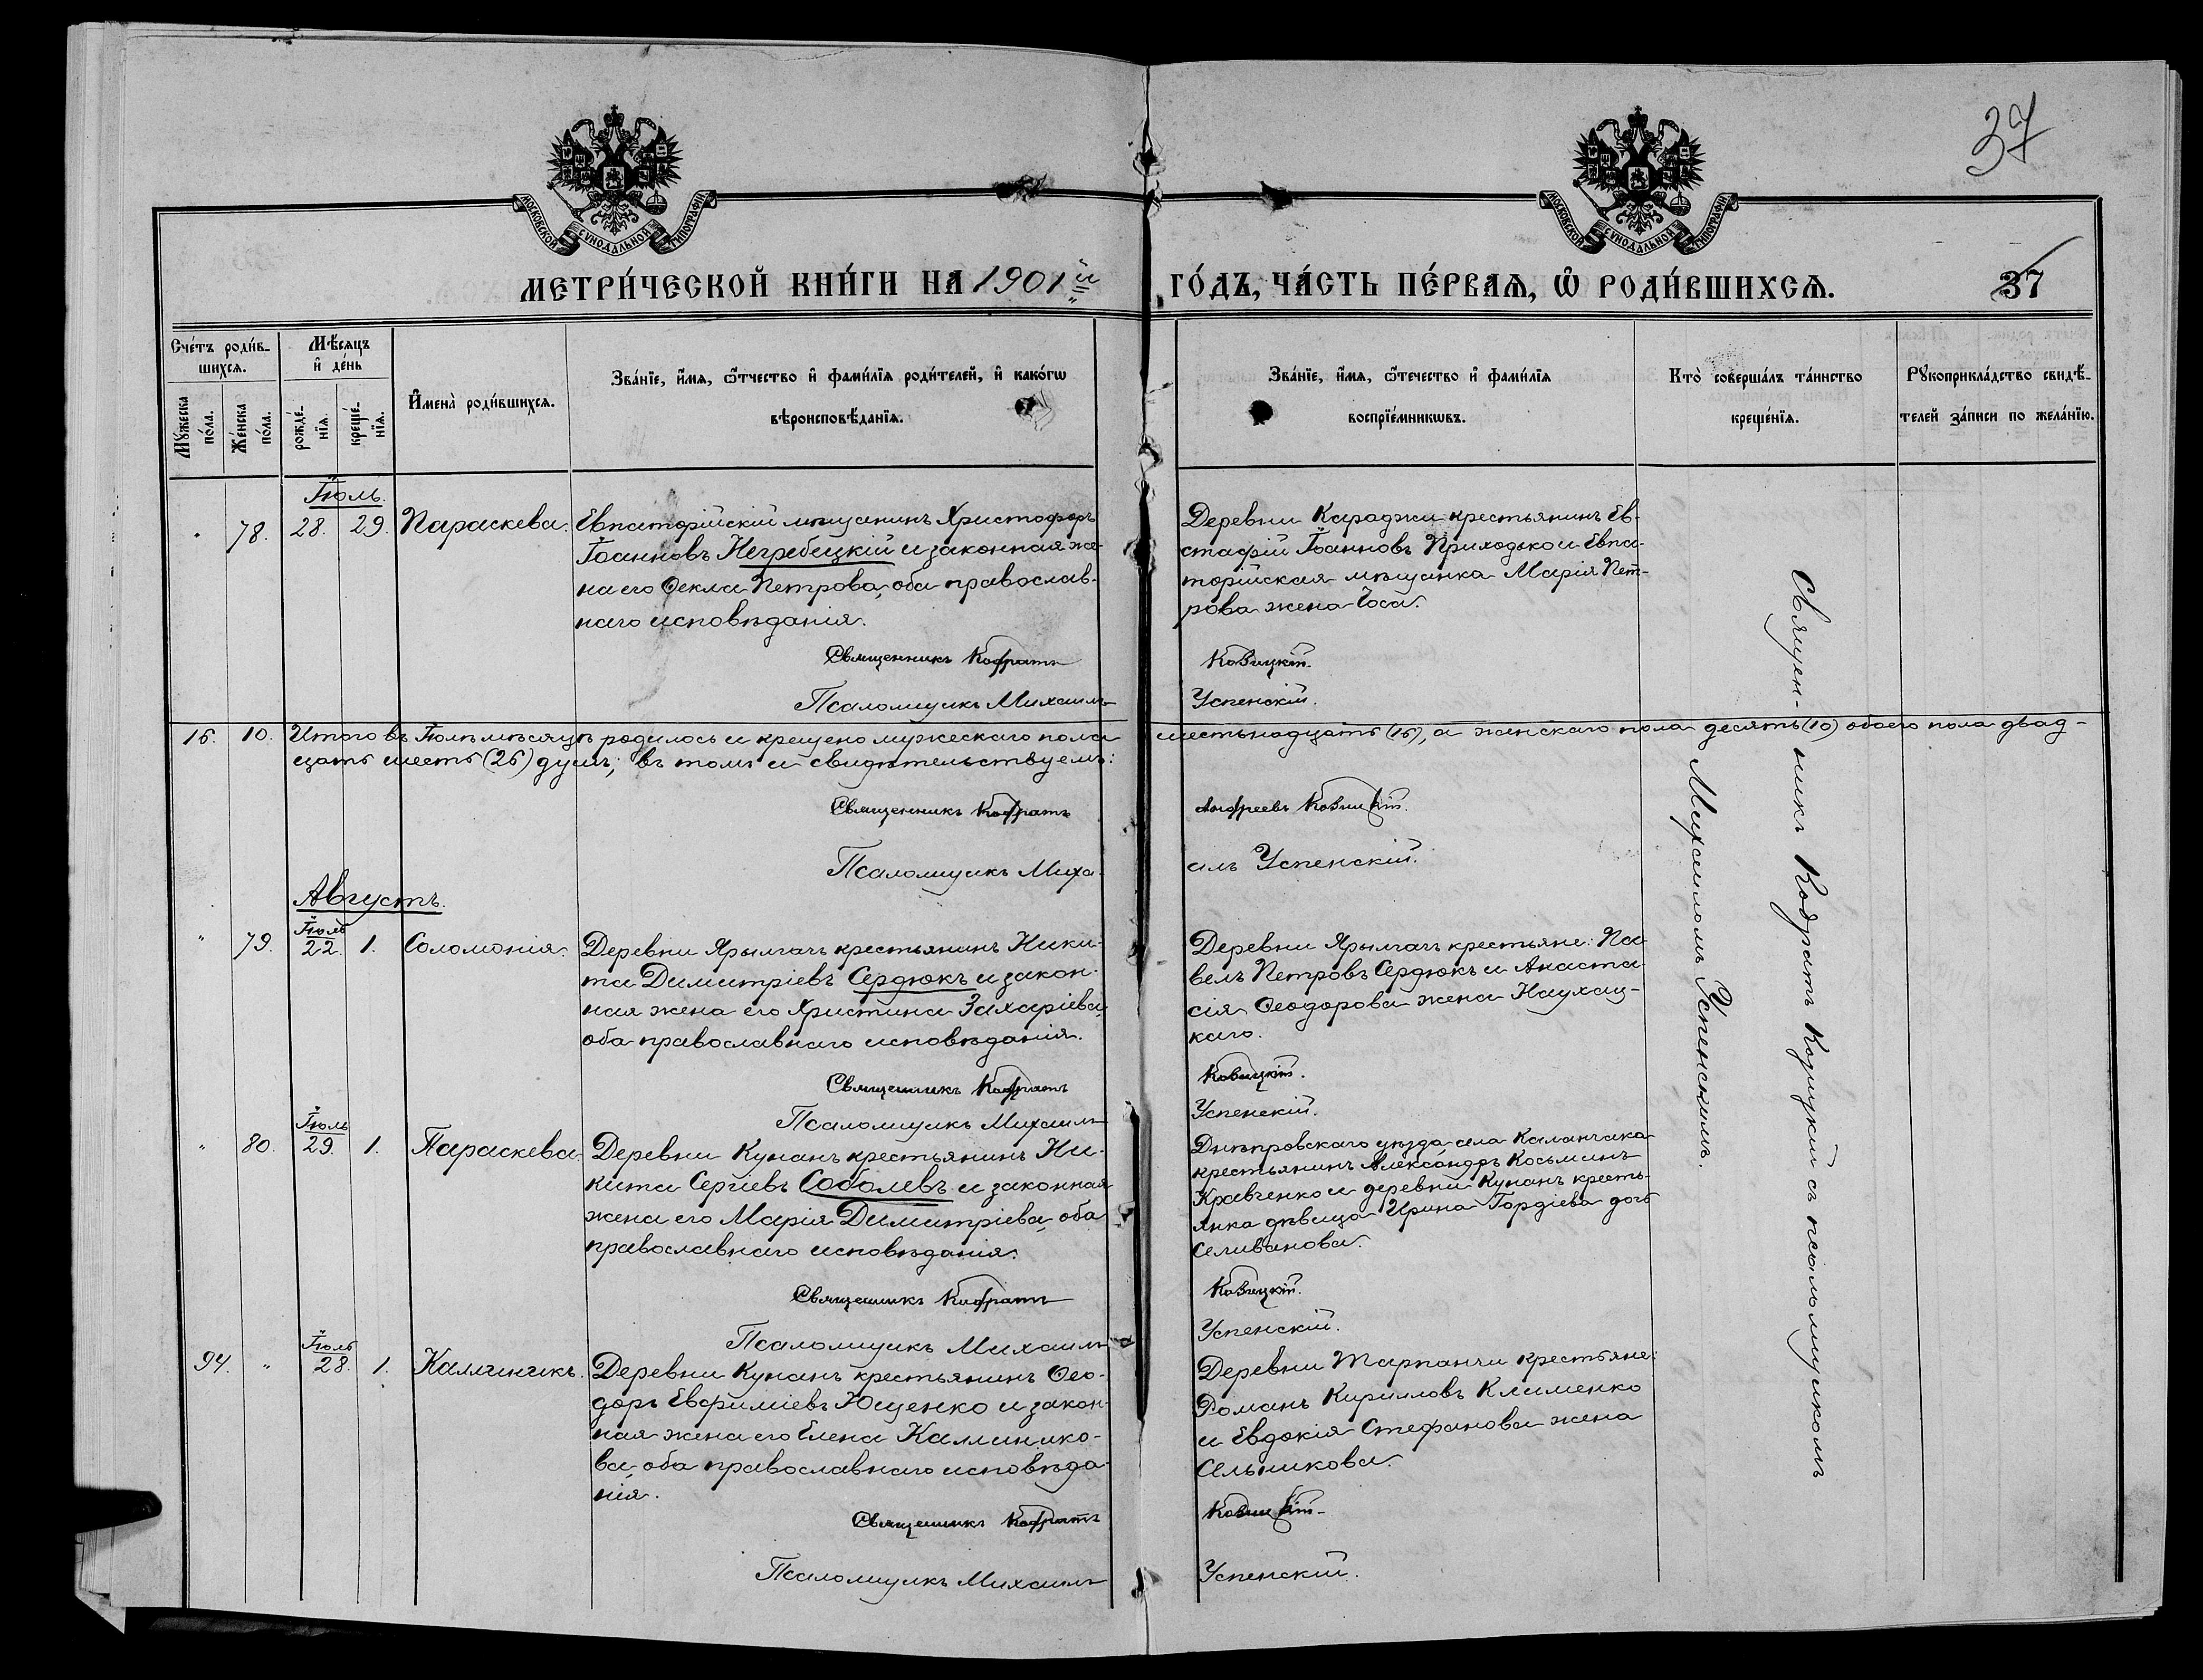 37
МОСКОВСКОЙ СѴНОДАЛЬНОЙ ТИПОГРАФІИ
МОСКОВСКОЙ СѴНОДАЛЬНОЙ ТИПОГРАФІИ
МЕТРИ́ЧЕСКОЙ КНИ́ГИ НА 1901й ГО́ДЪ, ЧА́СТЬ ПЕ́РВАѦ, Ѽ РОДИ́ВШИХСѦ. 37
Сче́тъ роди́в-
шихсѧ.
Мꙋ́жеска
по́ла.
Же́нска
по́ла.
Мѣ́сѧцъ
и҆ де́нь
рожде́-
нїѧ.
креще́-
нїѧ.
И҆мена̀ роди́вшихсѧ.
Зва́нїе, и҆́мѧ, ѻ҆́тчество и҆ фами́лїѧ роди́телей, и҆ како́гѡ
вѣроисповѣ́данїѧ.
Зва́нїе, и҆́мѧ, ѻ҆́течество и҆ фами́лїѧ
воспрїе́мникѡвъ.
Кто̀ соверша́лъ та́инство
креще́нїѧ.
Рꙋкоприкла́дство свидѣ́-
телей за́писи по жела́нїю.
Іюль.
" 78. 28. 29. Параскева.
Евпаторійскій мѣщанинъ Христофоръ
Іоанновъ Негребецкій и законная же-
на его Ѳекла Петрова, оба православ-
наго исповѣданія.
Священникъ Кодратъ
Псаломщикъ Михаилъ
Деревни Караджи крестьянинъ Ев-
стафій Іоанновъ Приходько и Евпа-
торійская мѣщанка Марія Пет-
рова жена Чоса.
Ковицкій.
Успенскій.
16. 10. Итого въ Іюлѣ мѣсяцѣ родилось и крещено мужескаго пола шестьнадцать (16), а женскаго пола десять (10) обоего пола двад-
цать шесть (26) душъ; въ томъ и свидѣтельствуемъ:
Священникъ Кодратъ Андреевъ Ковицкій.
Псаломщикъ Миха-
илъ Успенскій.
Августъ.
" 79. Іюль 22. 1. Соломонія.
Деревни Ярылгачъ крестьянинъ Ники-
та Димитріевъ Сердюкъ и закон-
ная жена его Христина Захаріева,
оба православнаго исповѣданія.
Священникъ Кодратъ
Псаломщикъ Михаилъ
Деревни Ярылгачъ крестьяне: Па-
велъ Петровъ Сердюкъ и Анаста-
сія Ѳеодорова жена Наухац-
каго.
Ковицкій.
Успенскій.
" 80. Іюль 29. 1. Параскева.
Деревни Кунанъ крестьянинъ Ни-
кита Сергіевъ Соболевъ и законная
жена его Марія Димитріева, оба
православнаго исповѣданія.
Священникъ Кодратъ
Псаломщикъ Михаилъ
Днѣпровскаго уѣзда села Каланчака
крестьянинъ Александръ Косьминъ
Кравченко и деревни Кунанъ кресть-
янка дѣвица Ирина Гордіева дочь
Селиванова.
Ковицкій.
Успенскій.
94. " Іюль 28. 1. Каллиникъ.
Деревни Кунанъ крестьянинъ Ѳео-
доръ Евфиміевъ Ющенко и закон-
ная жена его Елена Каллинико-
ва, оба православнаго исповѣда-
нія.
Священникъ Кодратъ
Псаломщикъ Михаилъ
Деревни Тарпанчи крестьяне:
Романъ Кирилловъ Клименко
и Евдокія Стефанова жена
Сельникова.
Ковицкій.
Успенскій.
Священ-никъ Кодратъ Ковицкій съ псаломщикомъ
Михаиломъ Успенскимъ.